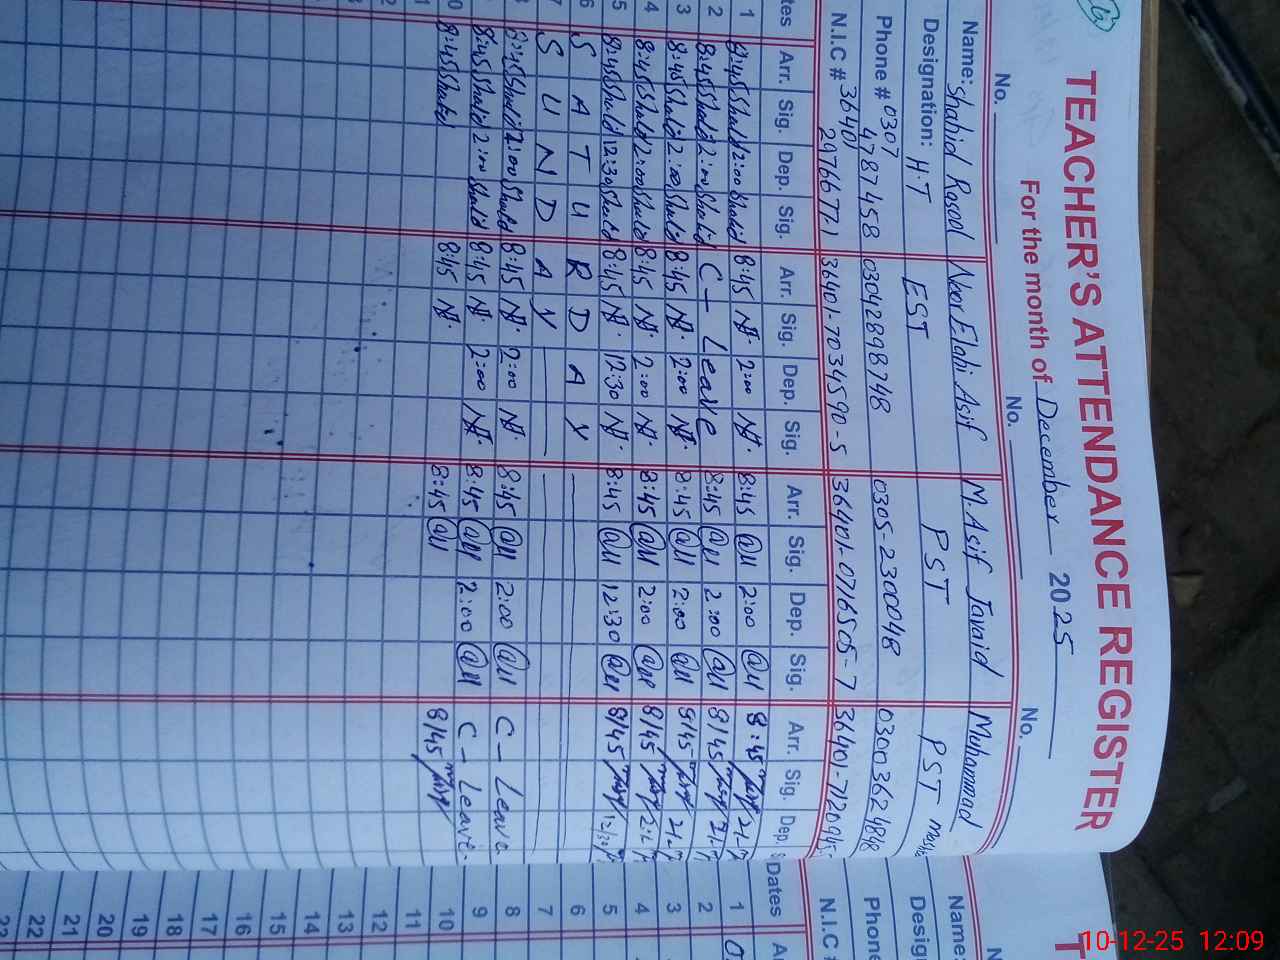 TEACHER'S ATTENDANCE REGISTER
For the month of December 2025
No. No. No.
Name: Shahid Rasool Noor Elahi Asif M. Asif Javaid Muhammad
Designation: H.T EST PST PST
Phone # 0307 4787458 03042898748 0305-2300048 03003624848
N.I.C # 36401 2976677 1 36401-7034590-5 36401-0716505-7 36401-7120945-
tes Arr. Sig. Dep. Sig. Arr. Sig. Dep. Sig. Arr. Sig. Dep. Sig. Arr. Sig. Dep. S
1 8:45 Shahid 2:00 Shahid 8:45 2:00 8:45 2:00 8:45
2 8:45 Shahid 2:00 Shahid C - Leave 8:45 2:00 8/45
3 8:45 Shahid 2:00 Shahid 8:45 2:00 8:45 2:00 8/45
4 8:45 Shahid 2:00 Shahid 8:45 2:00 8:45 2:00 8/45
5 8:45 Shahid 12:30 Shahid 8:45 12:30 8:45 12:30 8/45 12/30
6 S A T U R D A Y
7 S U N D A Y
8 8:45 Shahid 2:00 Shahid 8:45 2:00 8:45 2:00 C - Leave
8:45 Shahid 2:00 Shahid 8:45 2:00 8:45 2:00 C - Leave.
0 8:45 Shahid 8:45 8:45 8/45
1
2
T
N
Name:
Design
Phone
N.I.C #
Dates A
1 0
2
3
4
5
6
7
8
9
10
11
12
13
14
15
16
17
18
19
20
21
22
23
10-12-25 12:09